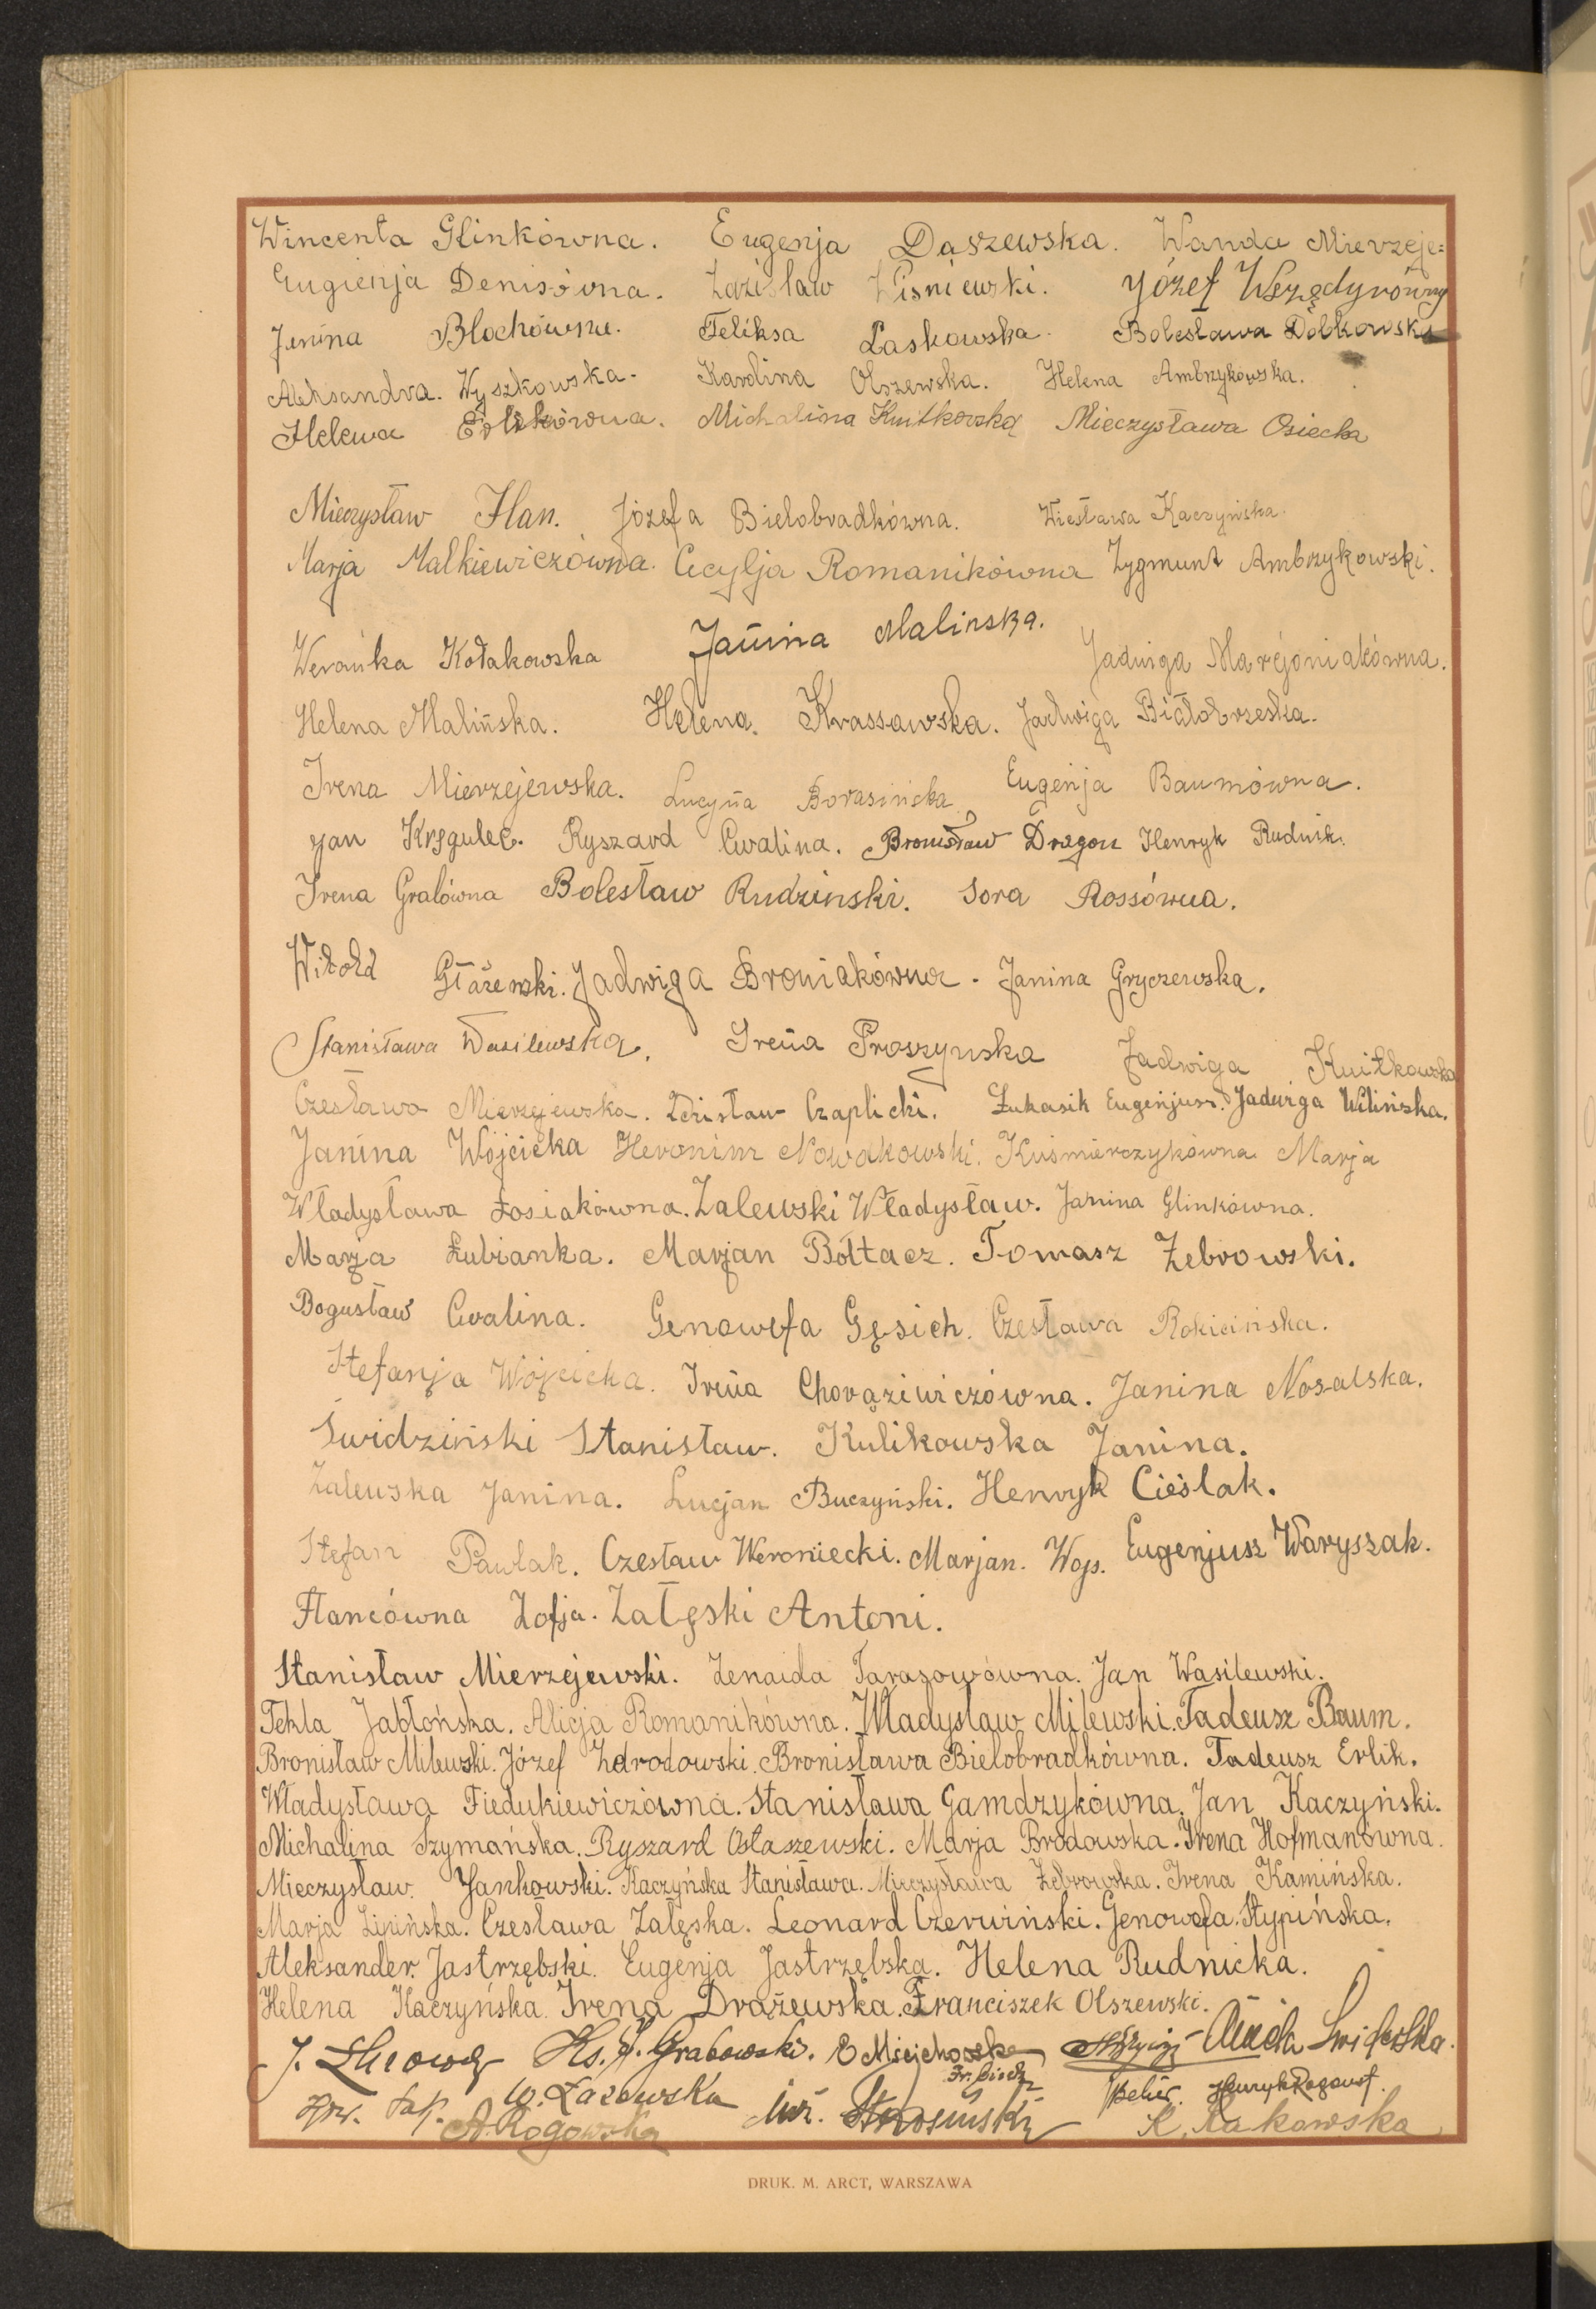 Wincenta Glinkówna. Eugenja Daszewska. Wanda Mierzeje=
Eugienja Denisówna. Zdzisław Wiśniewski. Józef
Janina Blochówna. Feliksa Laskowska. Bolesława Dobkowska
Aleksandra. Wyszkowska. Karolina Olszewska. Helena Ambrzykowska.
Helena Erlikówna. Michalina Kwitkowska Mieczysława Osiecka
Mieczysław Flan. Józefa Bielobradkówna. Wiesława Kaczyńska.
Marja Malkiewiczówna. Cecylja Romanikówna Zygmunt Ambrzykowski.
Weronika Kołakowska Janina Malinska. Jadwiga
Helena Malińska. Helena. Krassowska. Jadwiga Białobrzeska.
Irena Mierzejewska. Lucyna Eugenja Baumówna.
Jan Krygulec. Ryszard Cwalina. Bronisław Dragon Henryk Rudnik.
Irena Gralówna Bolesław Rudzinski. Sora Rossówna.
Witold Głażewski. Jadwiga Broniakówna. Janina Gryczewska.
Stanisława Wasilewska. Irena Proszynska Jadwiga Kwitkowska
Czesława Mierzejewska. Zdzisław Czaplicki. Łukasik Eugenjusz. Jadwiga Wilińska.
Janina Wójcicka Heronim Nowakowski. Kuśmierczykówna Marja
Władysława Łosiakówna. Zalewski Władysław. Janina Glinkówna.
Marja Łubianka. Marjan Bółtacz. Tomasz Żebrowski.
Bogusław Cwalina. Genowefa Gęsich. Czesława Rokicińska.
Stefanja Wójcicka. Irena Chorąziwiczówna. Janina Nosalska.
Świdziński Stanisław. Kulikowska Janina.
Zalewska Janina. Lucjan Buczyński. Henryk Cieślak.
Stefan Pawlak. Czesław Weroniecki. Marjan. Wojs. Eugenjusz Waryszak.
Flancówna Zofja. Załęski Antoni.
Stanisław Mierzejewski. Zenaida Tarasowówna. Jan Wasilewski.
Tekla Jabłońska. Alicja Romanikówna. Władysław Milewski. Tadeusz Baum.
Bronisław Milewski. Józef Zdrodowski. Bronisława Bielobradkówna. Tadeusz Erlik.
Władysława Fiedukiewiczówna. Stanisława Gamdzykówna. Jan Kaczyński.
Michalina Szymańska. Ryszard Ostaszewski. Marja Brodowska. Irena Hofmanówna.
Mieczysław. Jankowski. Kaczyńska Stanisława. Mieczysława Żebrowska. Irena Kamińska.
Marja Lipińska. Czesława Załęska. Leonard Czerwiński. Genowefa. Stypińska.
Aleksander. Jastrzębski. Eugenja Jastrzębska. Helena Rudnicka.
Helena Kaczyńska. Irena Drążewska. Franciszek Olszewski.
J. Ks. J. Grabowski. E
W. Łazowska
A. Rogowska K. Rakowska
DRUK. M. ARCT, WARSZAWA